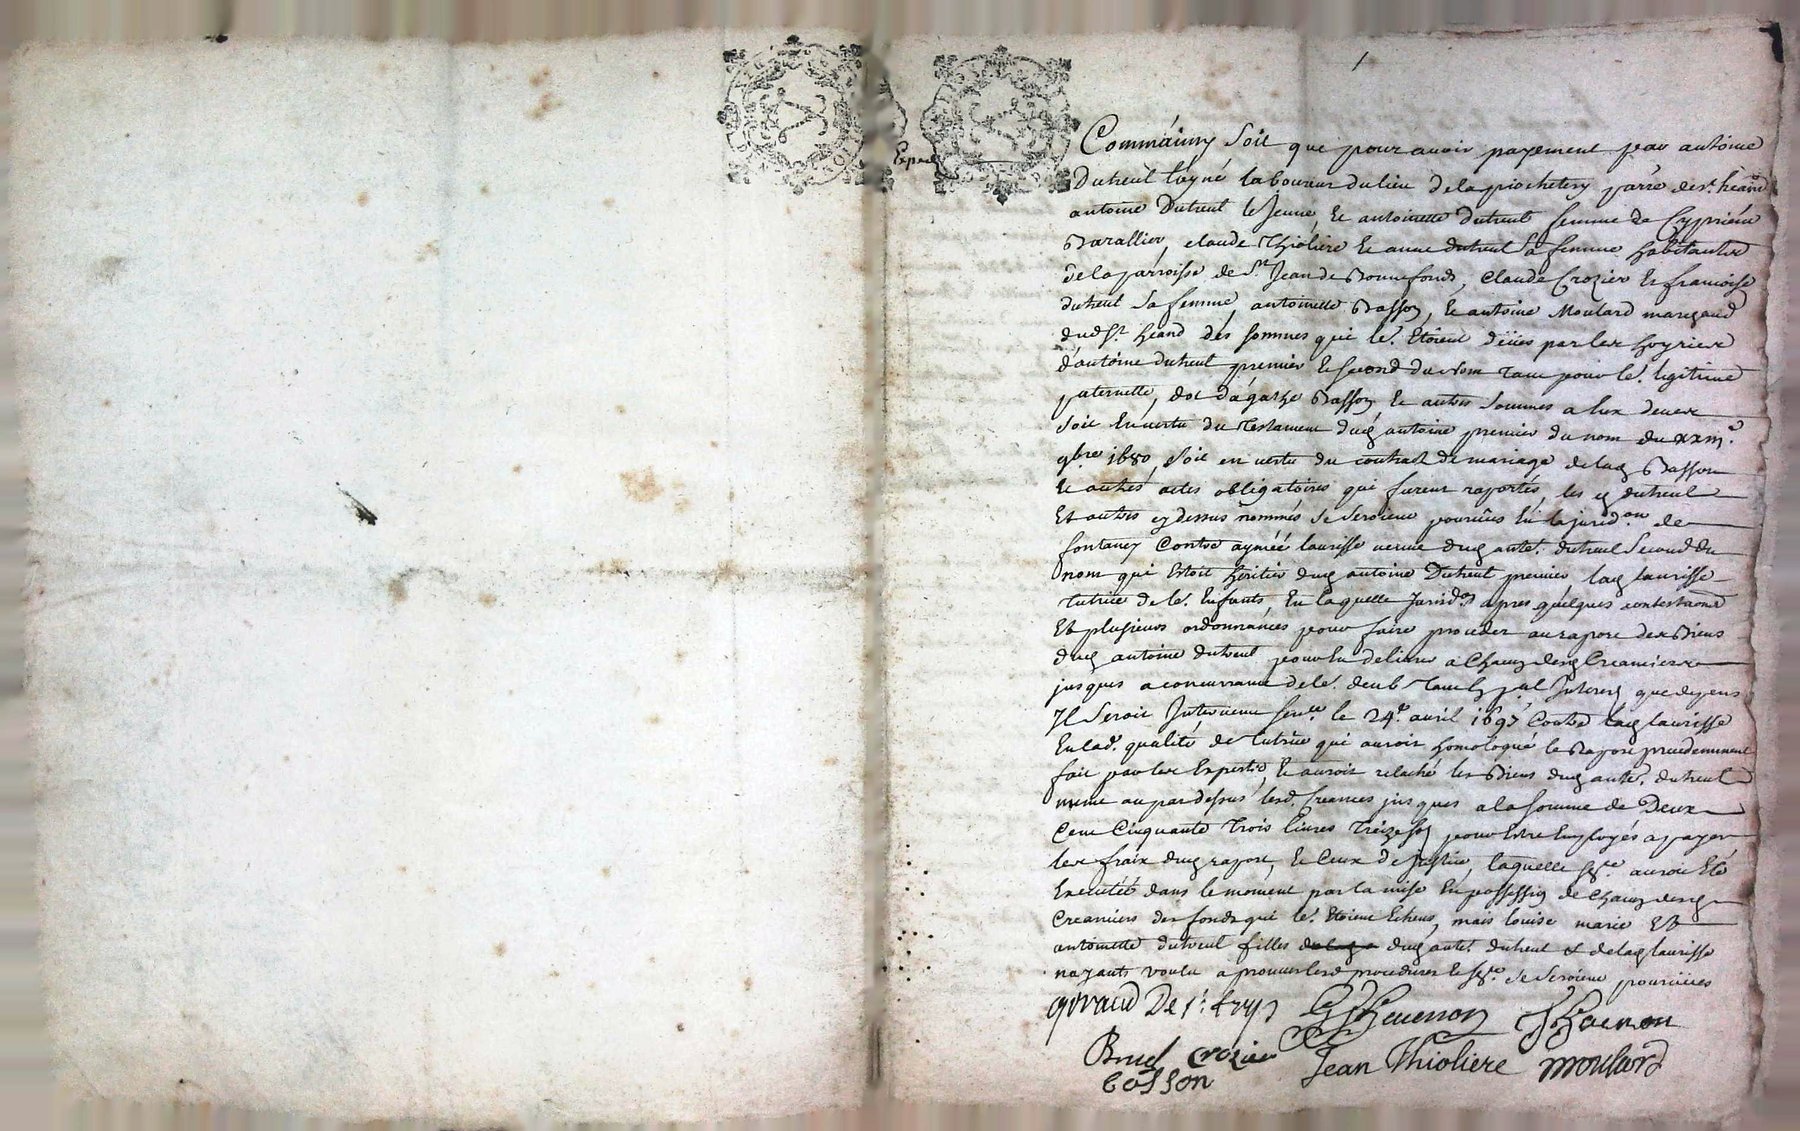 1
Comme ainsy soit que pour avoir payement jean antoine
Dutreul l'ayné laboureur du lieu de la piochetery parre de st. héand
antoine Dutreul le Jeune, et antoinette dutreul femme de Cyprién
Barallier, claude Thiolière et anne dutreul sa femme habitants
de la parroisse de St. Jean de Bonnefonds, Claude Crozier et francoise
dutreul sa femme, antoinette Basson, et antoine Moulard marchand
dud St. héand des sommes qui le. Etoient dües par les hoyries
d'antoine dutreul premier et second du nom tant pour le. légitime
paternelle, dot d'agathe Basson et autres sommes a eux deues
soit en vertu du Testament dud antoine premier du nom du
9bre 1680, soit en vertu du contract de mariage de lad Basson
et autres actes obligatoires qui furent raportés, les d dutreul
Et autres cy dessus nommés se seroient pourvûs en la jurid.on de
fontaney Contre aymée laurisse veuve dud ante. dutreul second du
nom qui Estoit héritier dud antoine Dutreul premier, lad laurisse
tutrice de se. Enfants, En laquelle Jurid.on apres quelques contestaons
Et plusieurs ordonnances pour faire proceder au raport des Biens
dud antoine dutreul pour En delivrer a Chacun desd Creanciers
jusques a concurrance de le. deub tant en p.al Interest que depens
Il seroit Intervenue sen.ce le 24.e avril 1697 Contre lad laurisse
En lad. qualité de tutrice qui auroit homologué le Raport precedemment
fait par les Experts, et auroit relaché les Biens dud ante. dutreul
meme au par dessus lesd. Creances jusques a la somme de Deux
Cent Cinquante trois livres treize s pour Estre Employés a payer
les fraix dud raport, et Ceux de justice, laquelle se.ce auroit Eté
Executée dans le moment par la mise En possession de chacun desd
Creanciers des fonds qui le. Etoient Echeus, mais louise marie Et
antoinette dutreul filles dud ante. dutreul et de lad laurisse
nayants voulu aprouver lesd procedures et se.ce se seroient pourvües
Thevenon
Crozier Jean Thioliere moulard
cosson